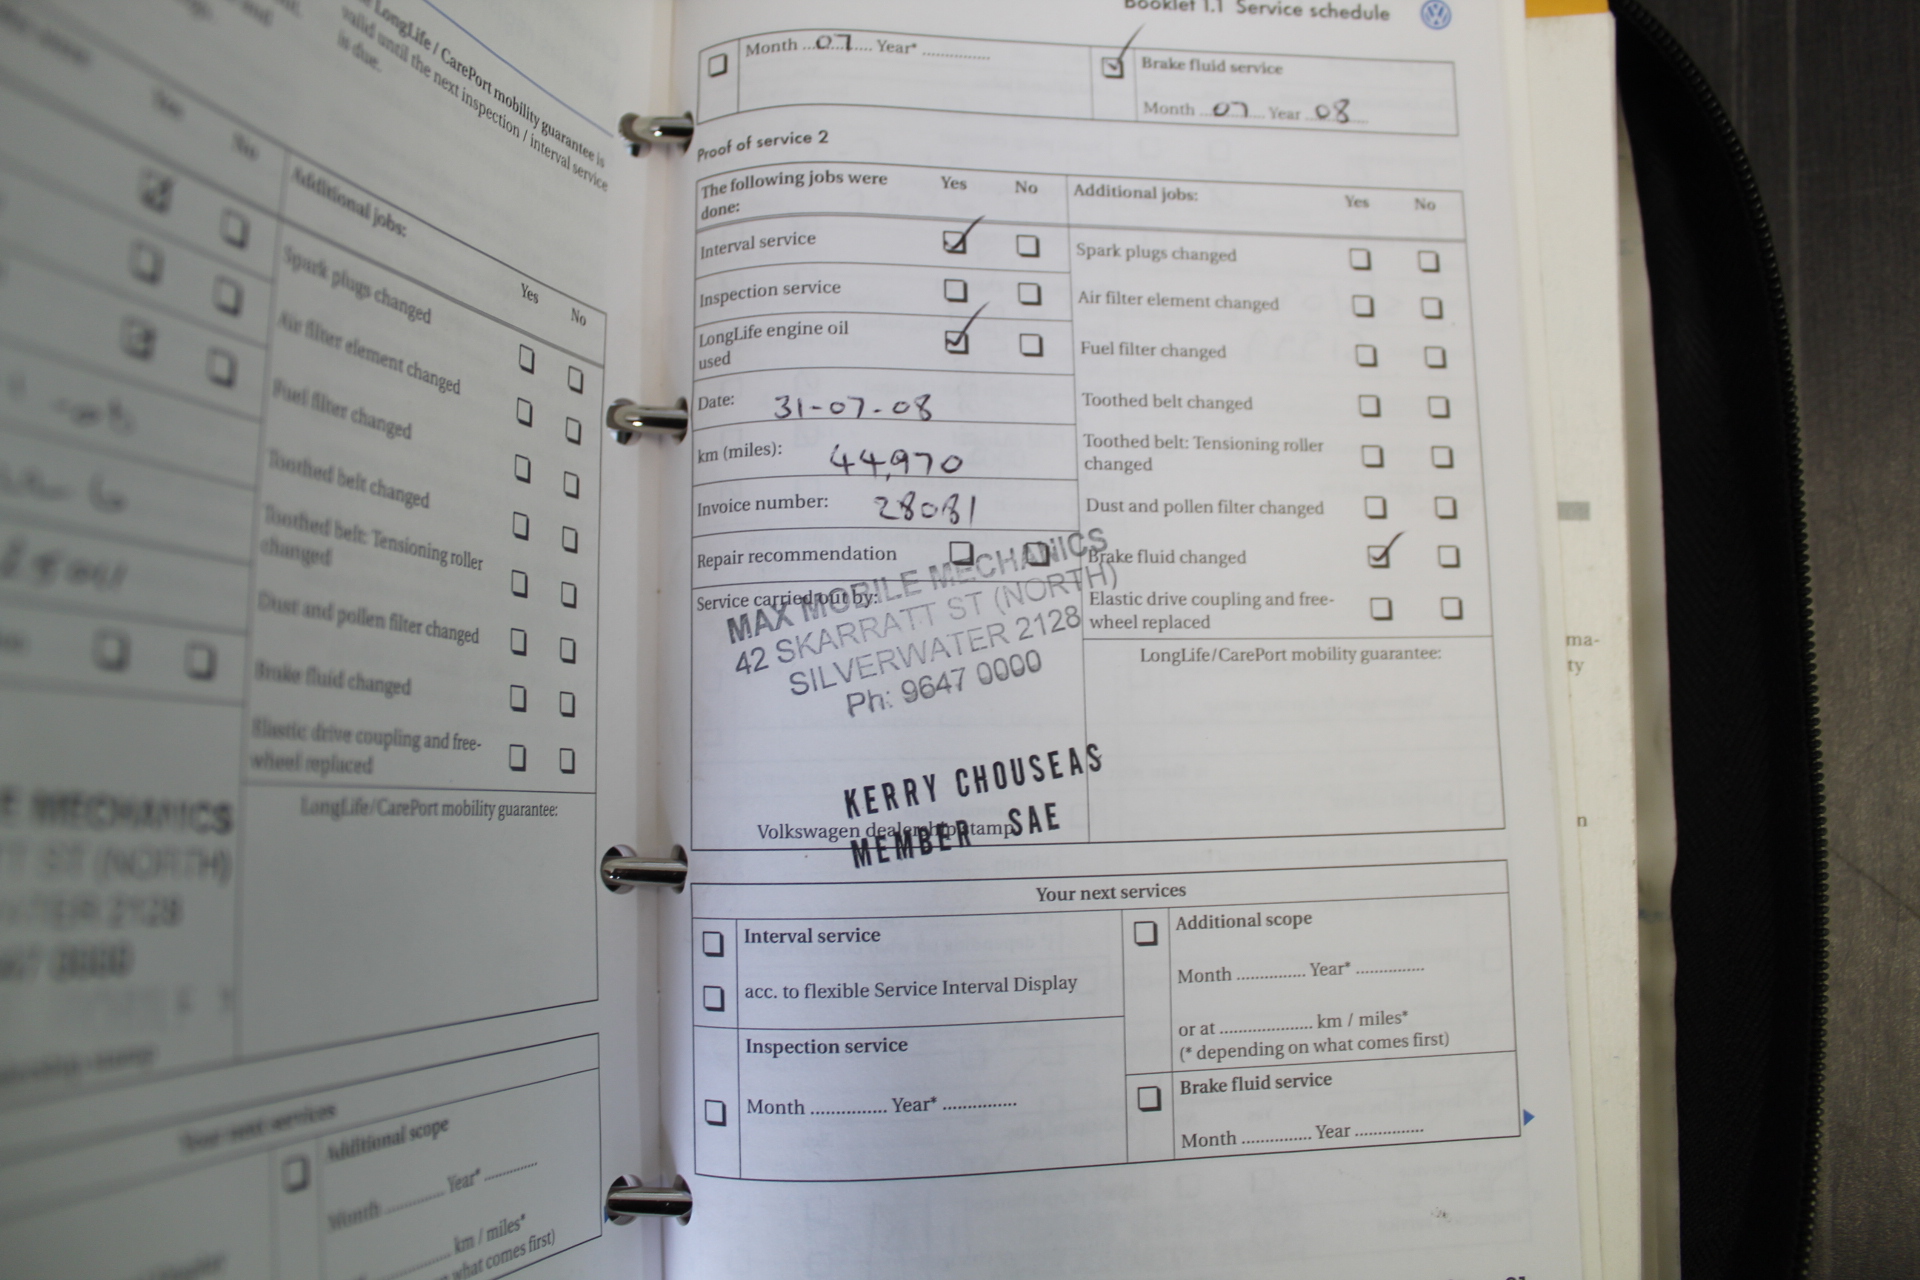 LongLife / CarePort mobility guarantee is
valid until the next inspection / interval service
is due.
No
Additional jobs:
Yes
No
Spark plugs changed
Air filter element changed
Fuel filter changed
Toothed belt changed
Toothed belt: Tensioning roller
changed
Dust and pollen filter changed
Brake fluid changed
Elastic drive coupling and free-
wheel replaced
LongLife/CarePort mobility guarantee:
MECHANICS
ST (NORTH)
2128
0000
Your next services
Additional scope
Month .............. Year* ..............
km / miles*
what comes first)
Booklet 1.1 Service schedule
Month 07 Year* ..............
Brake fluid service
Month 07 Year 08
Proof of service 2
The following jobs were
done:
Yes
No
Interval service
Inspection service
LongLife engine oil
used
Date: 31-07-08
km (miles): 44,970
Invoice number: 28081
Repair recommendation
Service carried out by:
MAX MOBILE MECHANICS
42 SKARRATT ST (NORTH)
SILVERWATER 2128
Ph: 9647 0000
KERRY CHOUSEAS
MEMBER SAE
Volkswagen dealership stamp
Additional jobs:
Yes
No
Spark plugs changed
Air filter element changed
Fuel filter changed
Toothed belt changed
Toothed belt: Tensioning roller
changed
Dust and pollen filter changed
Brake fluid changed
Elastic drive coupling and free-
wheel replaced
LongLife/CarePort mobility guarantee:
Your next services
Interval service
acc. to flexible Service Interval Display
Inspection service
Month .............. Year* ..............
Additional scope
Month .............. Year* ..............
or at ................... km / miles*
(* depending on what comes first)
Brake fluid service
Month .............. Year ..............
ma-
ty
n